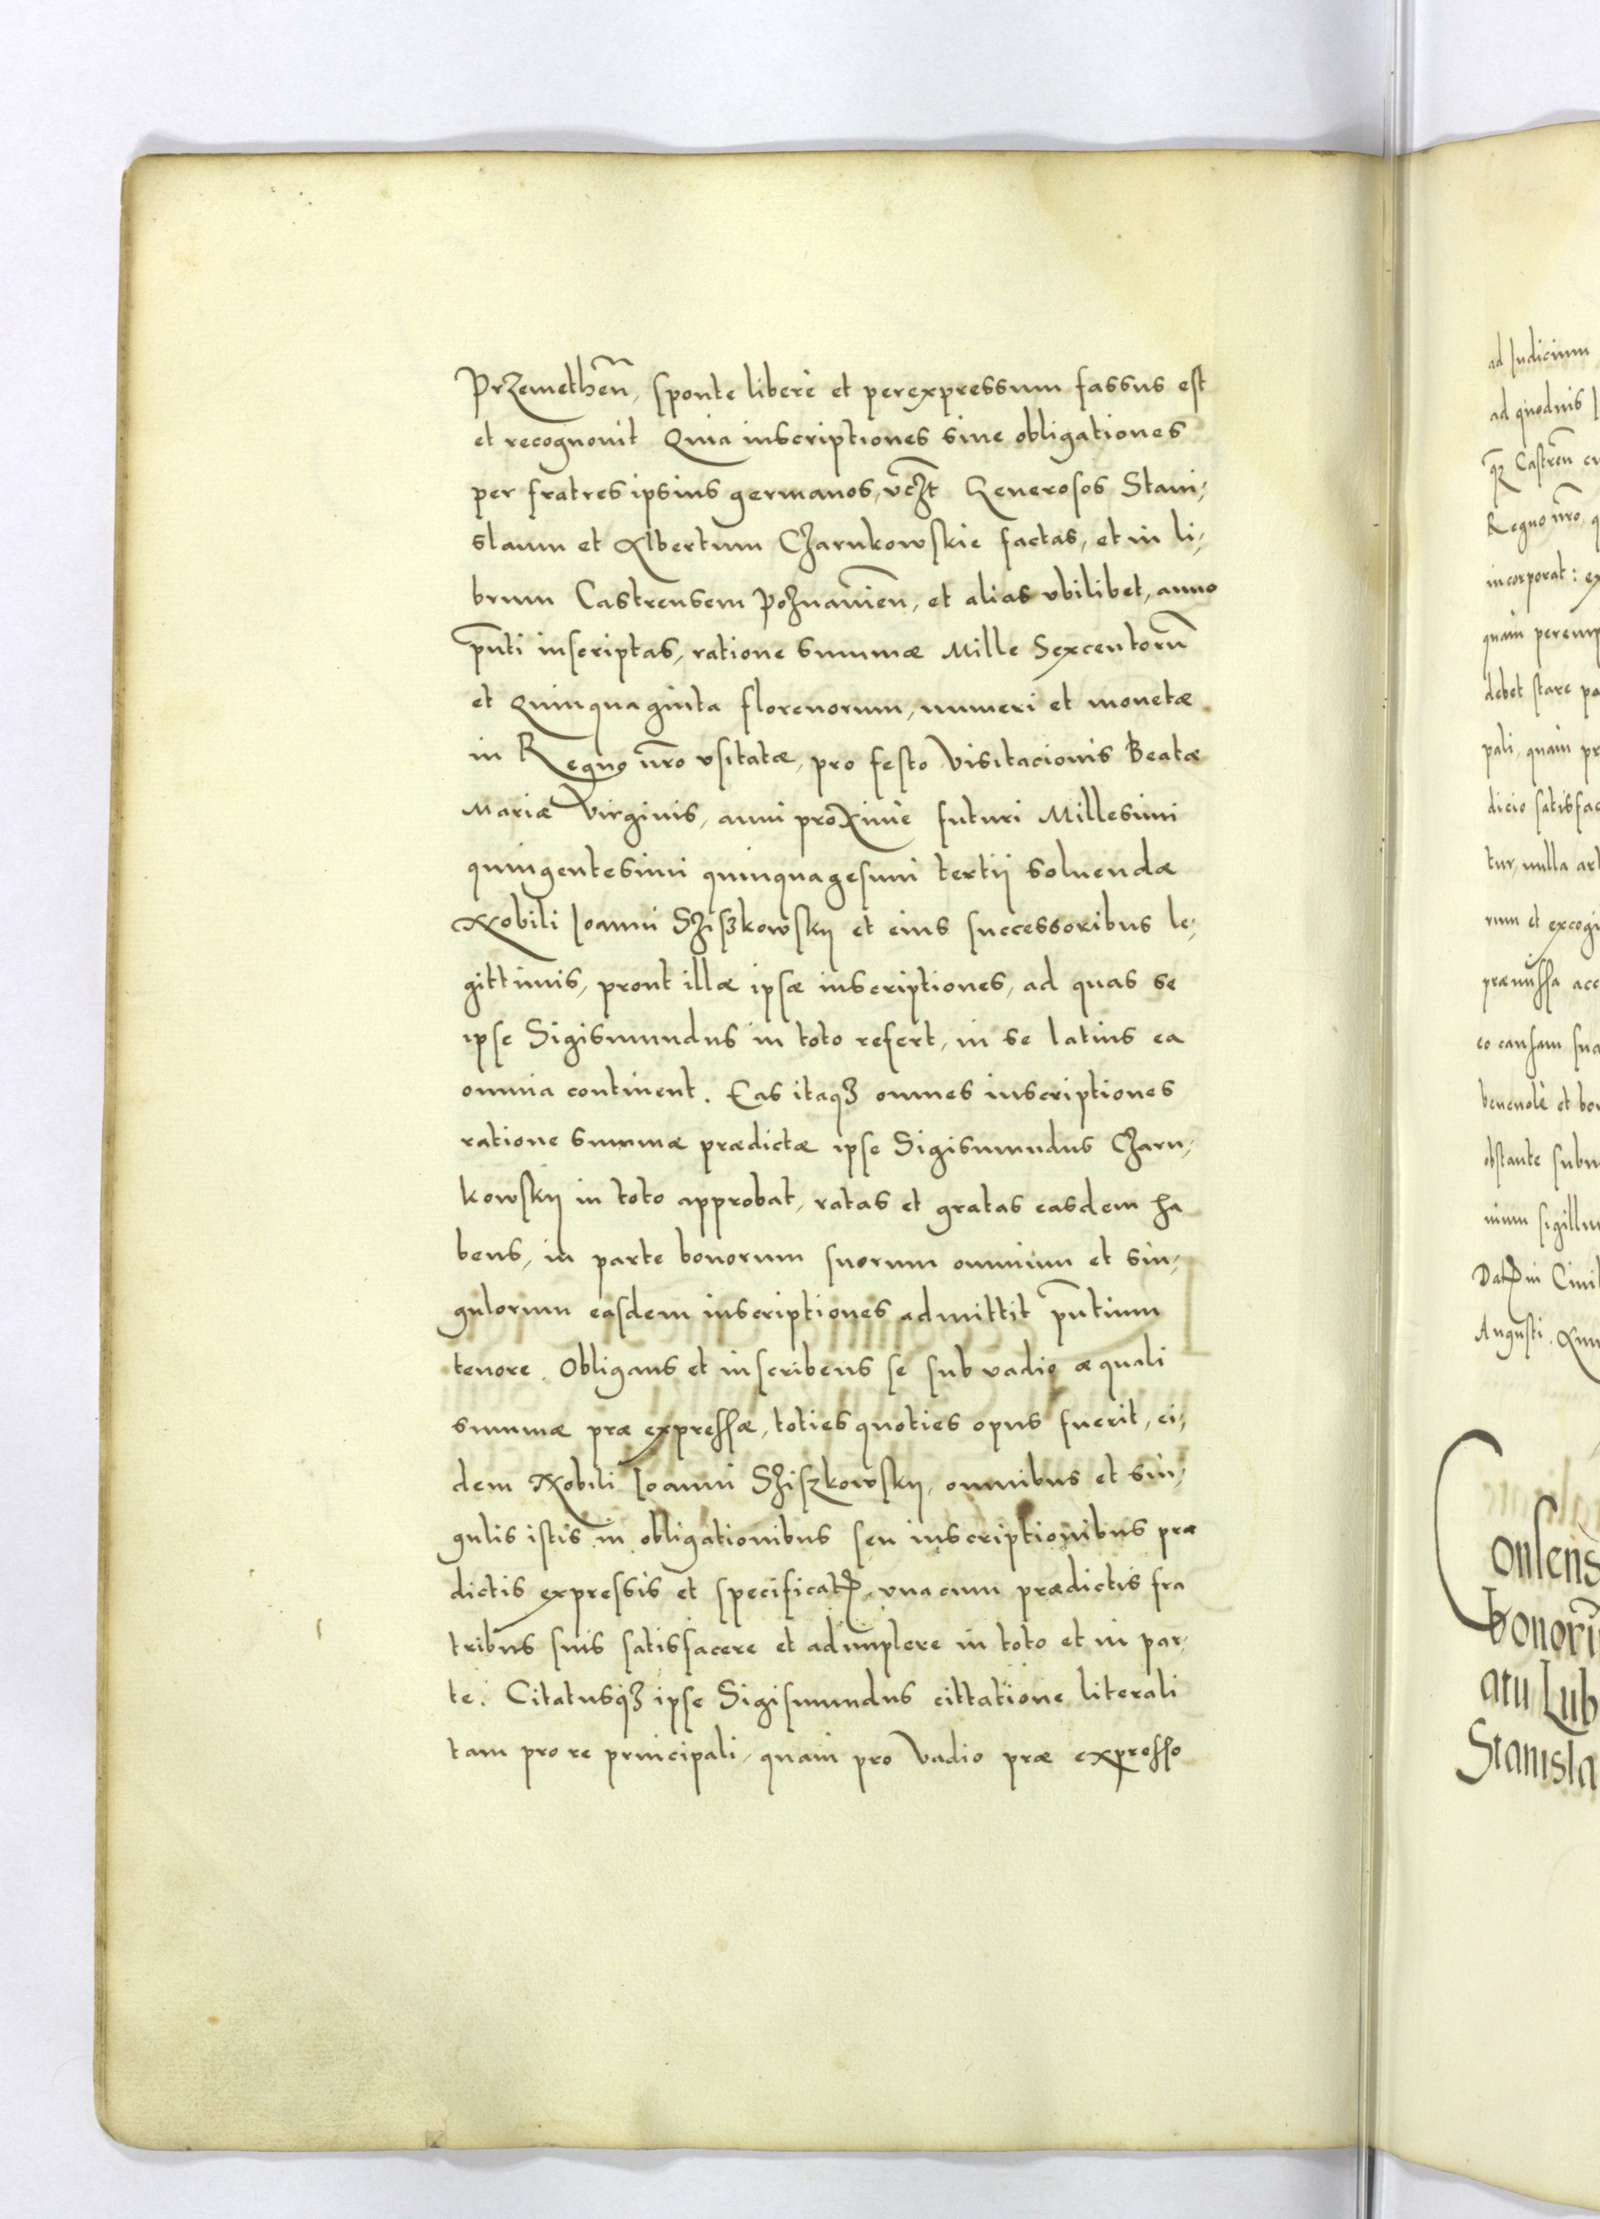 Przemetheñ, sponte liberè et perexpressum fassus est
et recognouit Quia inscriptiones siue obligationes
per fratres ipsius germanos, vczt Generosos Stani,
slaum et Albertum Charnkowskie factas, et in li,
brum Castrensem Poznanień, et alias vbilibet, anno
pñti inscriptas, ratione summæ Mille Sexcentorũ
et Quinquaginta florenorum, numeri et monetæ
in Regno ñro vsitatæ, pro festo Visitacionis Beatæ
Mariæ Virginis, anni proximè futuri Millesimi
quingentesimi quinquagesimi tertii soluendæ
Nobili Ioanni Sziszkowskij et eius successoribus le,
gittimis, prout illæ ipsæ inscriptiones, ad quas se
ipse Sigismundus in toto refert, in se latius ea
omnia continent. Eas itaqꝫ omnes inscriptiones
ratione summæ prædictæ ipse Sigismundus Charn,
kowskij in toto approbat, ratas et gratas easdem ha
bens, in parte bonorum suorum omnium et sin,
gulorum easdem inscriptiones admittit pñtium
tenore. Obligans et inscribens se sub vadio æquali
summæ præ expressæ, toties quoties opus fuerit, ei,
dem Nobili Ioanni Sziszkowskij, omnibus et sin,
gulis istis in obligationibus seu inscriptionibus præ
dictis expressis et specificatꝭ, vna cum prædictis fra
tribus suis satisfacere et adimplere in toto et in par,
te. Citatusqꝫ ipse Sigismundus cittatione literali
tam pro re principali, quam pro vadio præ expresso
ad Iudicium
ad quoduis
Castreñ
Regno ñro,
incorporat:
quam peremp
debet stare pa
pali, quam pr
dicio satisfac
tur, nulla art
rum et excogi
præmissa acc
eo causam sua
beneuolè et bo
obstante subm
nium sigillu
Datꝭ in Ciui
Augusti. Ann
Consens
bonorũ
atu Lub
Stanisla